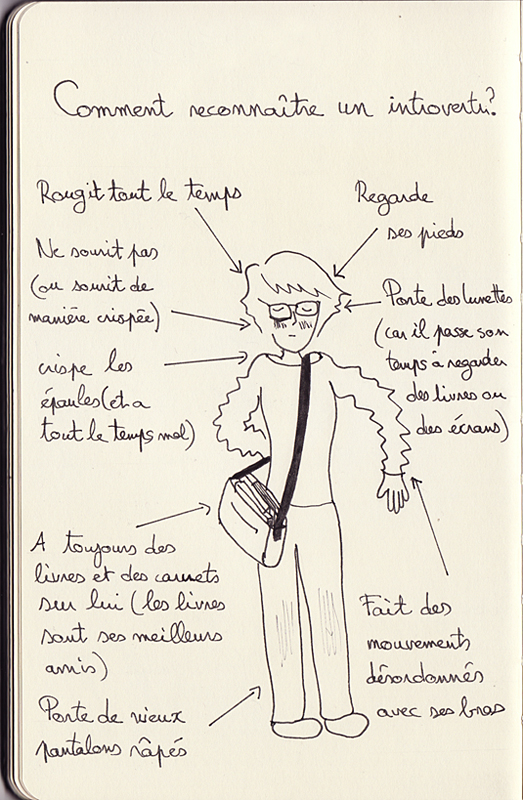 Comment reconnaître un introverti?
Rougit tout le temps
Regarde
ses pieds
Ne sourit pas
(ou sourit de
manière crispée)
Porte des lunettes
(car il passe son
temps à regarder
des livres ou
des écrans)
crispe les
épaules (et a
tout le temps mal)
A toujours des
livres et des carnets
sur lui (les livres
sont ses meilleurs
amis)
Fait des
mouvements
désordonnés
avec ses bras
Porte de vieux
pantalons râpés